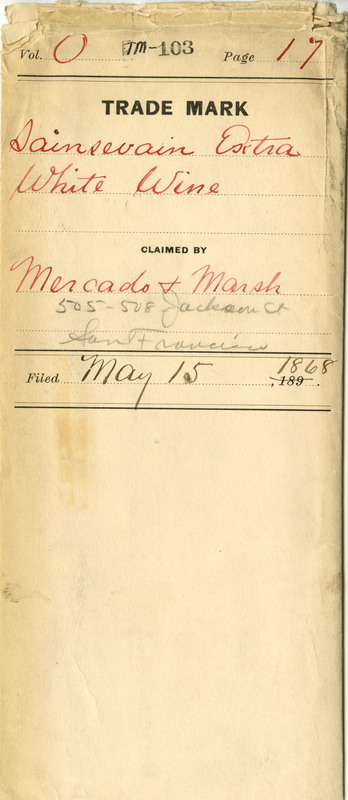 Vol. O TM-103 Page 17
TRADE MARK
Sainsevain Extra
White Wine
CLAIMED BY
Mercado & Marsh
505-508 Jackson St
San Francisco
Filed May 15 1868, 189 .